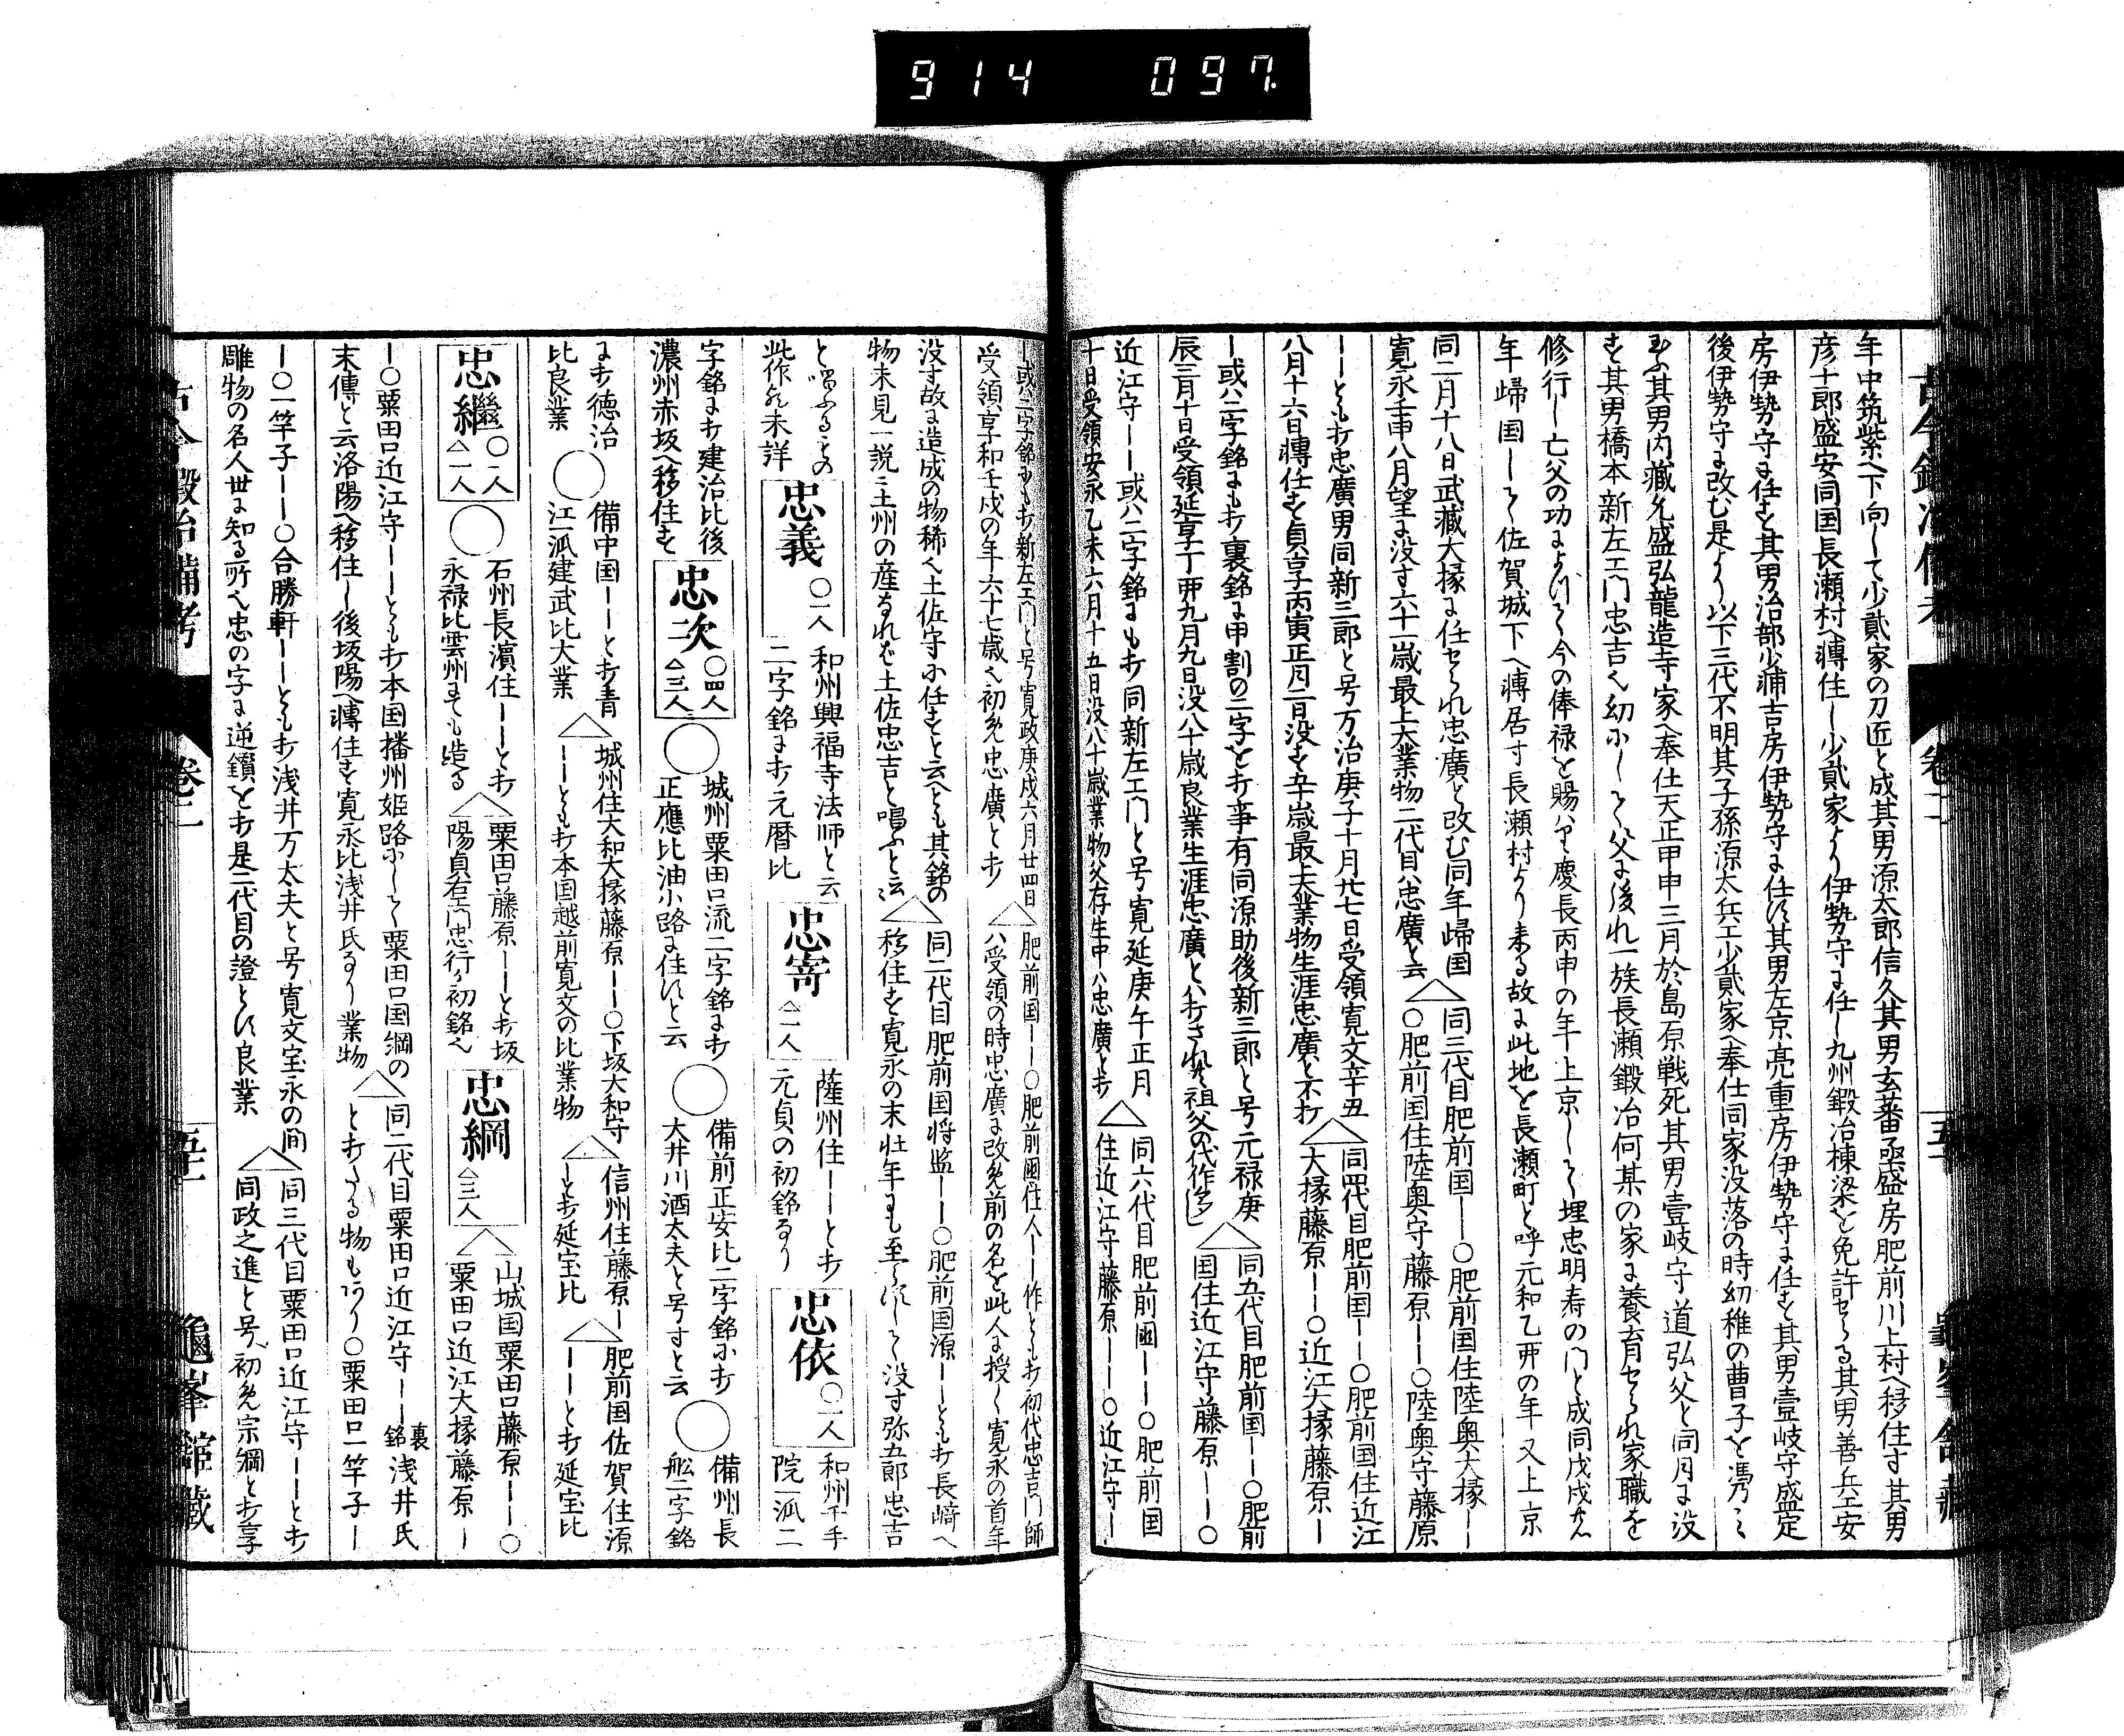 914 097.
年中筑紫へ下向して少貳家の刀匠と成其男源太郎信久其男玄蕃亟盛房肥前川上村へ移住す其男
彦十郎盛安同国長瀬村へ轉住し少貳家より伊勢守に任し九州鍛冶棟梁を免許せらる其男善兵エ安
房伊勢守に任す其男治部少輔吉房伊勢守に任ス其男左京亮重房伊勢守に任す其男壹岐守盛定
後伊勢守に改む是より以下三代不明其子孫源太兵エ少貳家へ奉仕同家没落の時幼稚の曹子を
其男内藏允盛弘龍造寺家へ奉仕天正甲申三月於島原戦死其男壹岐守道弘父と同月に没
す其男橋本新左エ門忠吉也幼にして父に後れ一族長瀬鍛冶何某の家に養育せられ家職を
修行し亡父の功によりて今の俸禄を賜ハり慶長丙申の年上京して埋忠明寿の門と成同戊戌
年歸国して佐賀城下へ轉居す長瀬村より来る故に此地を長瀬町と呼元和乙丑の年又上京
同二月十八日武藏大掾に任せられ忠廣と改む同年歸国
寛永壬申八月望に没す六十一歳最上大業物二代目ハ忠廣と云
△同三代目肥前国ー〇肥前国住陸奥大掾ー
〇肥前国住陸奥守藤原ーー〇陸奥守藤原
ーーとも打忠廣男同新三郎と号万治庚子十月廿七日受領寛文辛丑
八月十六日轉任す貞享丙寅正月二日没す五十歳最上大業物生涯忠廣と不打
△同四代目肥前国ー〇肥前国住近江
大掾藤原ーー〇近江大掾藤原ー
ー或ハ二字銘にも打裏銘に甲割の二字を打事有同源助後新三郎と号元禄庚
辰三月十日受領延享丁卯九月九日没八十歳良業生涯忠廣とハ打されと祖父の代作多し
△同五代目肥前国ーー〇肥前
国住近江守藤原ーー〇
近江守ーー或ハ二字銘にも打同新左エ門と号寛延庚午正月
十日受領安永乙未六月十五日没八十歳業物父存生中ハ忠廣と打
△同六代目肥前国ーー〇肥前国
住近江守藤原ーー〇近江守ー
ー或二字銘にも打新左エ門と号寛政庚戌六月廿四日
受領享和壬戌の年六十七歳也初免忠廣と打
△肥前国ーー〇肥前国住人ーー作とも打初代忠吉門師
ハ受領の時忠廣に改免前の名を此人に授く寛永の首年
没す故に造成の物稀也土佐守に任すと云へとも其銘の
物未見一説ニ土州の産なれハ土佐忠吉と唱ふと云
△同二代目肥前国将監ーー〇肥前国源ーーとも打長﨑へ
移住す寛永の末壮年にも至らすして没す弥五郎忠吉
と唱ふるとの
此作者未詳
忠義 〇一人
和州興福寺法師と云
二字銘に打元暦比
忠寄 △一人
薩州住ーーと打
元貞の初銘なり
忠依 〇一人
和州千手
院一派二
字銘に打建治比後
濃州赤坂へ移住す
忠次 〇四人 △三人
〇城州粟田口流二字銘に打
正應比油小路に住スと云
〇備前正安比二字銘に打
大井川酒太夫と号すと云
〇備州長
舩二字銘
に打徳治
比良業
〇備中国ーーと打青
江一派建武比大業
△城州住大和大掾藤原ーー〇下坂大和守
ーーとも打本国越前寛文の比業物
△信州住藤原ー
ーと打延宝比
△肥前国佐賀住源
ーーと打延宝比
忠繼 〇一人 △一人
〇石州長濱住ーーと打
永禄比雲州にても造る
△粟田口藤原ーーと打坂
陽貞右エ門忠行ノ初銘也
忠綱 △三人
△山城国粟田口藤原ーー〇
粟田口近江大掾藤原ー
ー〇粟田口近江守ーーとも打本国播州姫路にして粟田口国綱の
末傳と云洛陽へ移住し後坂陽へ轉住す寛永比浅井氏なり業物
△同二代目粟田口近江守ーー裏銘浅井氏
と打たる物もあり〇粟田口一竿子ー
ー〇一竿子ーー〇合勝軒ーーとも打浅井万太夫と号寛文宝永の間
雕物の名人世に知る所也忠の字に逆鑚を打是二代目の證とス良業
△同三代目粟田口近江守ーーと打
同政之進と号初免宗綱と打享
古今鍛冶備考 巻二 五十一 龜峯館藏